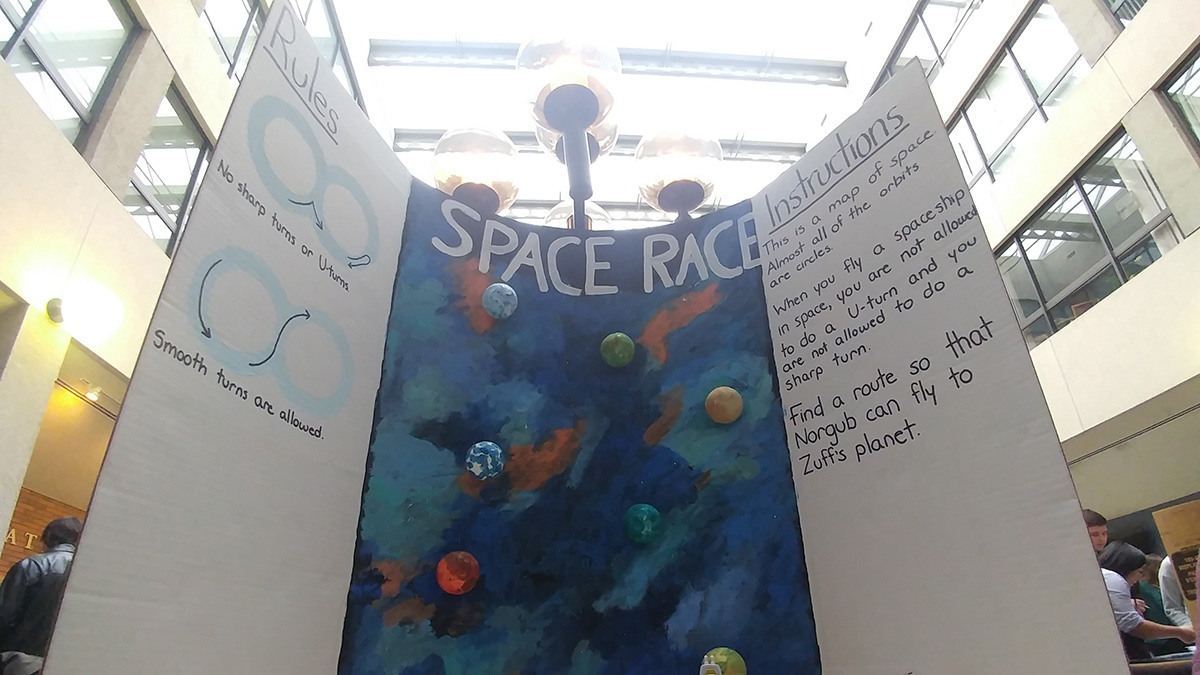 Rules
No sharp turns or U-turns
Smooth turns are allowed.
SPACE RACE
Instructions
This is a map of space.
Almost all of the orbits
are circles.
When you fly a spaceship
in space, you are not allowed
to do a U-turn and you
are not allowed to do a
sharp turn.
Find a route so that
Norgub can fly to
Zuff's planet.
AT